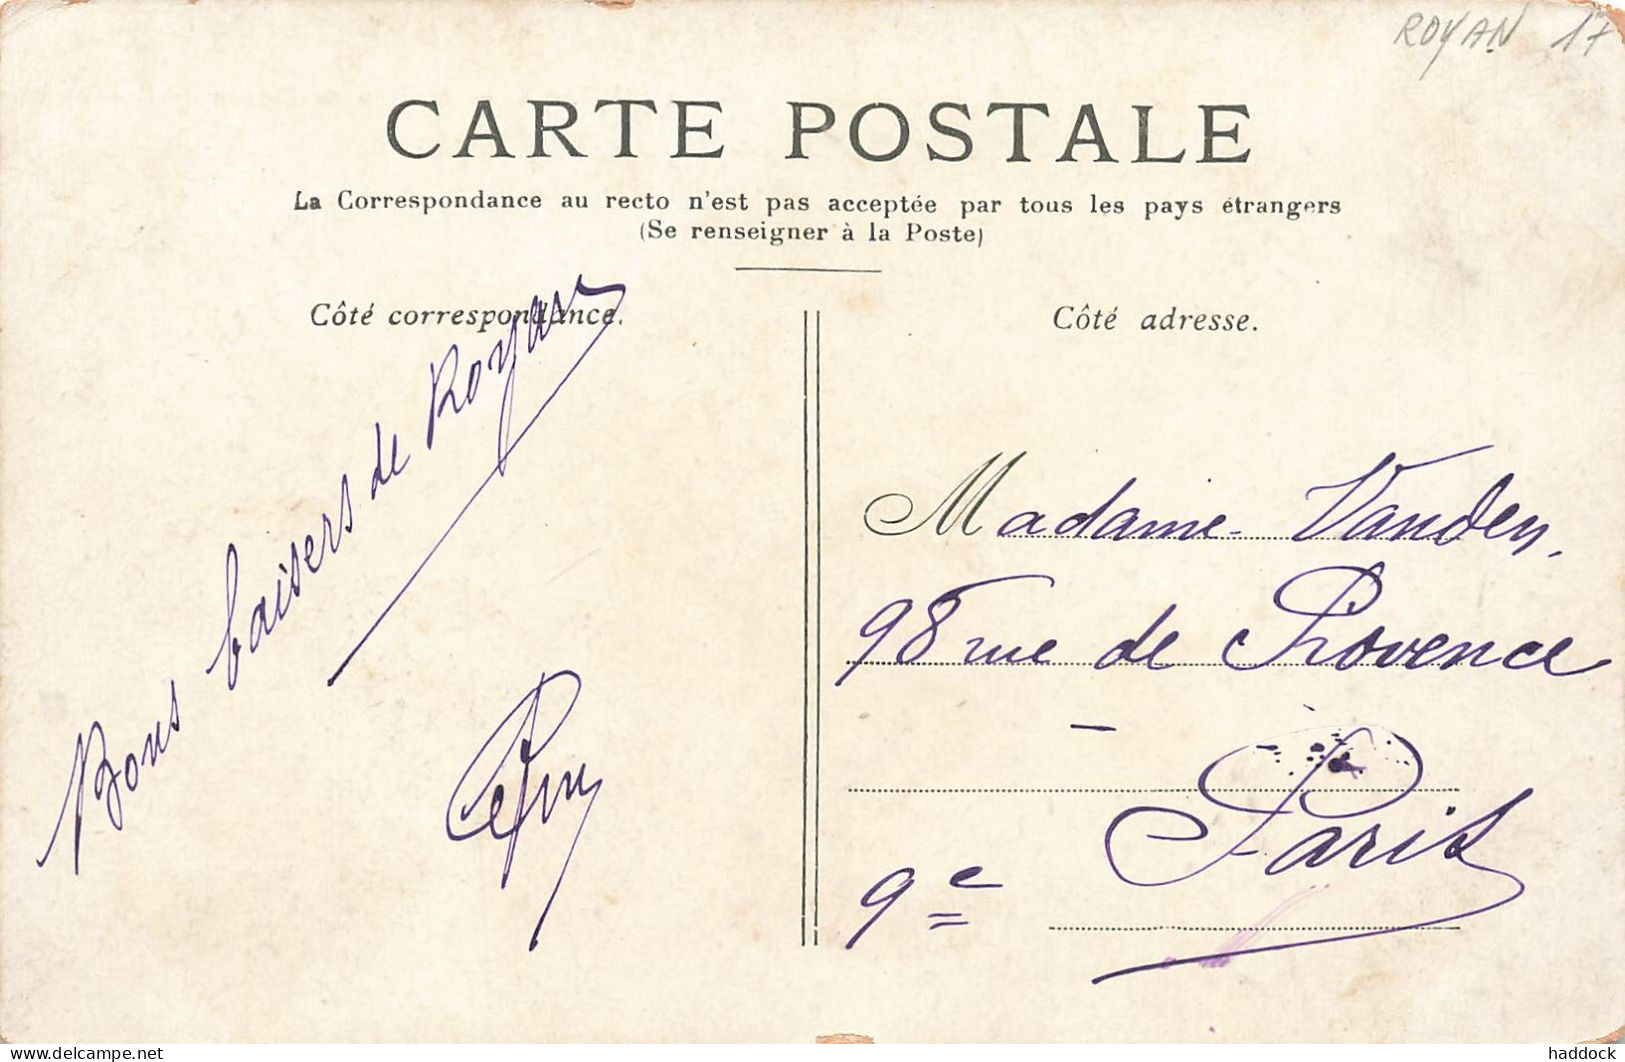 ROYAN 17
CARTE POSTALE
La Correspondance au recto n'est pas acceptée par tous les pays étrangers
(Se renseigner à la Poste)
Côté correspondance.
Bons baisers de Royan
Côté adresse.
Madame Vanden
98 rue de Provence
Paris
9e
www.delcampe.net
haddock